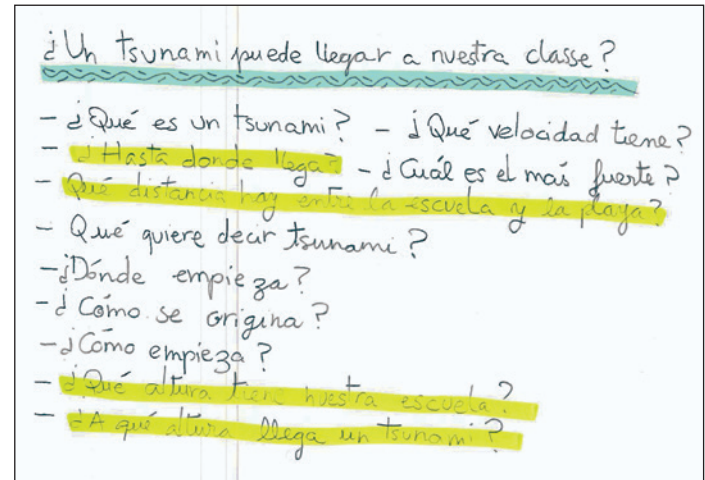 ¿Un tsunami puede llegar a nuestra classe?
- ¿Qué es un tsunami? - ¿Qué velocidad tiene?
- ¿Hasta donde llega? - ¿Cuál es el más fuerte?
- Qué distancia hay entre la escuela y la playa?
- Qué quiere decir tsunami?
- ¿Dónde empieza?
- ¿Cómo se origina?
- ¿Cómo empieza?
- ¿Qué altura tiene nuestra escuela?
- ¿A qué altura llega un tsunami?